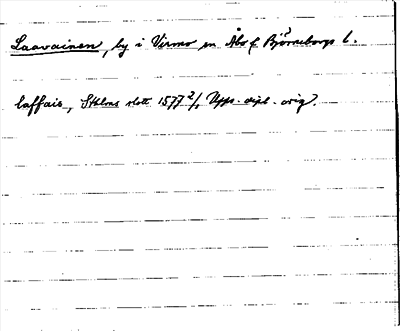 Laavainen, by i Virmo sn Åbo o. Björneborgs l.
laffais, Stklms slott 1577 2/1 Upps. dipl. orig.